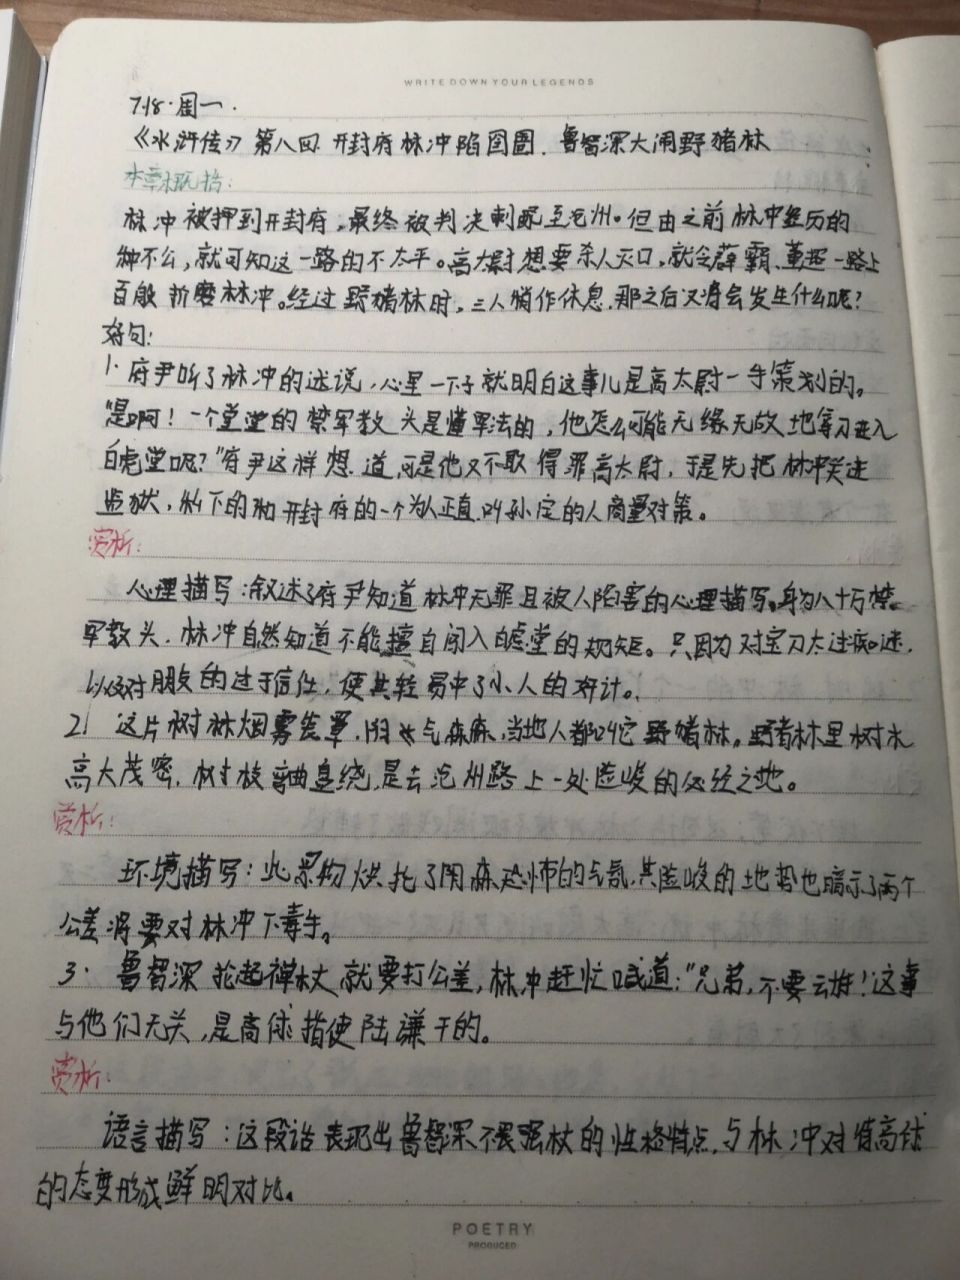 WRITE DOWN YOUR LEGENDS
7.18·周一.
《水浒传》第八回 开封府林冲陷囹圄、鲁智深大闹野猪林
本章概括:
林冲被押到开封府,最终被判决刺配至沧州。但由之前林冲经历的
种不公,就可知这一路的不太平。高太尉想要杀人灭口,就令薛霸、董超一路上
百般折磨林冲。经过野猪林时,三人稍作休息,那之后又将会发生什么呢?
好句:
1. 府尹听了林冲的述说,心里一下子就明白这事儿是高太尉一手策划的。
"是啊!一个堂堂的禁军教头是懂军法的,他怎么可能无缘无故地带刀进入
白虎堂呢?"府尹这样想道,可是他又不敢得罪高太尉,于是先把林冲关进
监狱,私下的和开封府的一个为人正直叫孙定的人商量对策。
赏析:
心理描写:叙述了府尹知道林冲无罪且被人陷害的心理描写。身为八十万禁
军教头,林冲自然知道不能擅自闯入白虎堂的规矩。只因为对宝刀太过痴迷,
以及对朋友的过于信任,使其轻易中了小人的奸计。
2. 这片树林烟雾笼罩,阴气森森,当地人都叫它野猪林。野猪林里树木
高大茂密,树枝弯曲盘绕,是去沧州路上一处险峻的必经之地。
赏析:
环境描写:此景物烘托了阴森恐怖的气氛,其险峻的地势也暗示了两个
公差将要对林冲下毒手。
3. 鲁智深抡起禅杖就要打公差,林冲赶忙喊道:"兄弟,不要去难!这事
与他们无关,是高俅指使陆谦干的。
赏析:
语言描写:这段话表现出鲁智深不畏强权的性格特点,与林冲对待高俅
的态度形成鲜明对比。
POETRY
PRODUCED